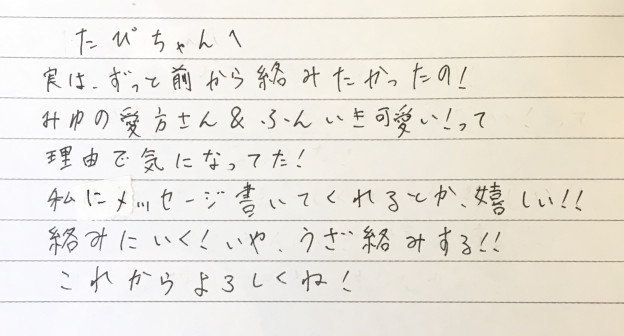 たぴちゃんへ
実は、ずっと前から絡みたかったの!
みゆの愛方さん&ふんいき可愛い!って
理由で気になってた!
私にメッセージ書いてくれるとか、嬉しい!!
絡みにいく!いや、うざ絡みする!!
これからよろしくね!